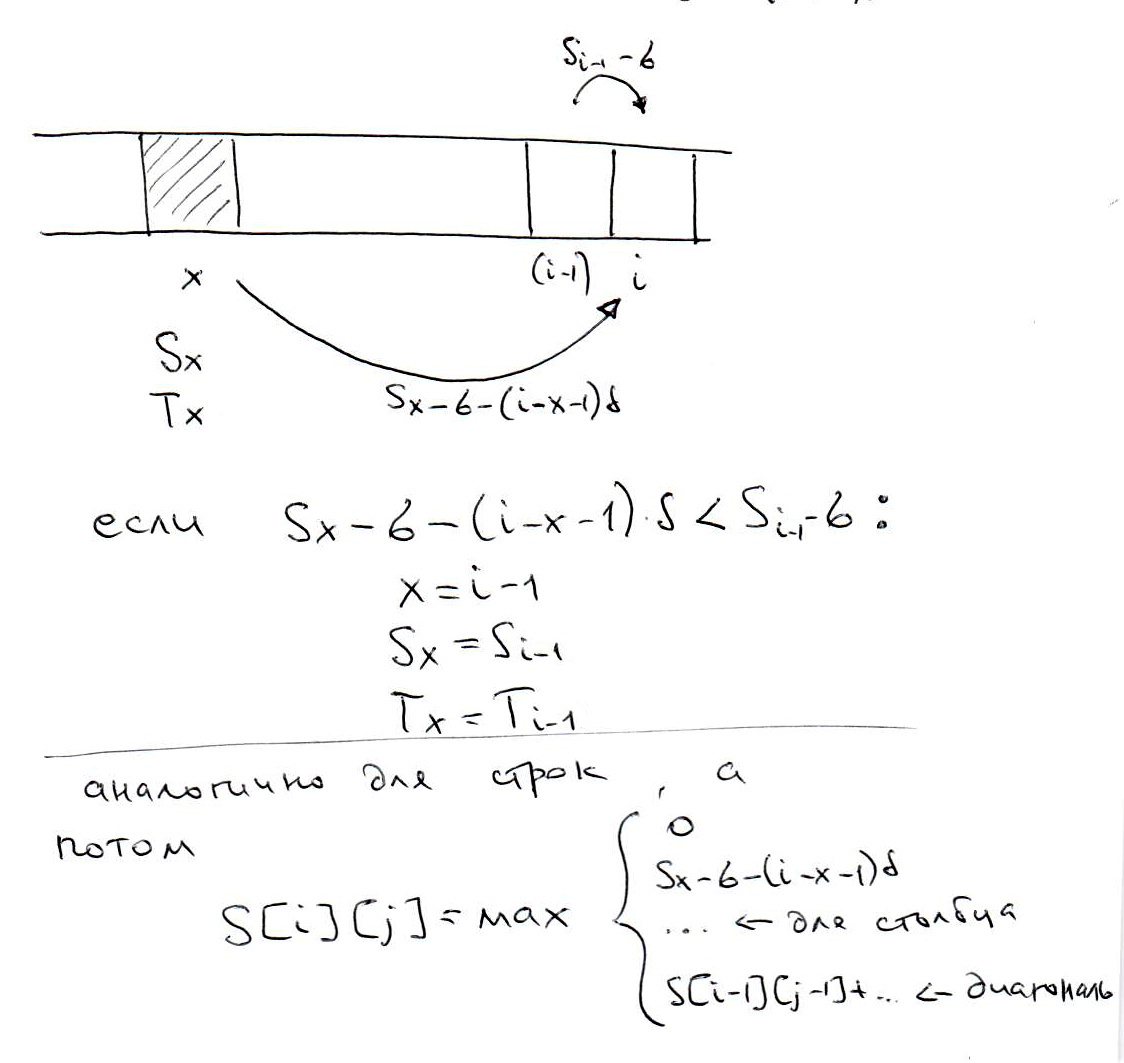 Si-1 - б
x (i-1) i
Sx
Tx
Sx-б-(i-x-1)δ
если Sx-б-(i-x-1)·δ < Si-1-б :
x = i-1
Sx = Si-1
Tx = Ti-1
аналогично для строк, а
потом
0
Sx-б-(i-x-1)δ
S[i][j] = max
... ← для столбца
S[i-1][j-1]+... ← диагональ